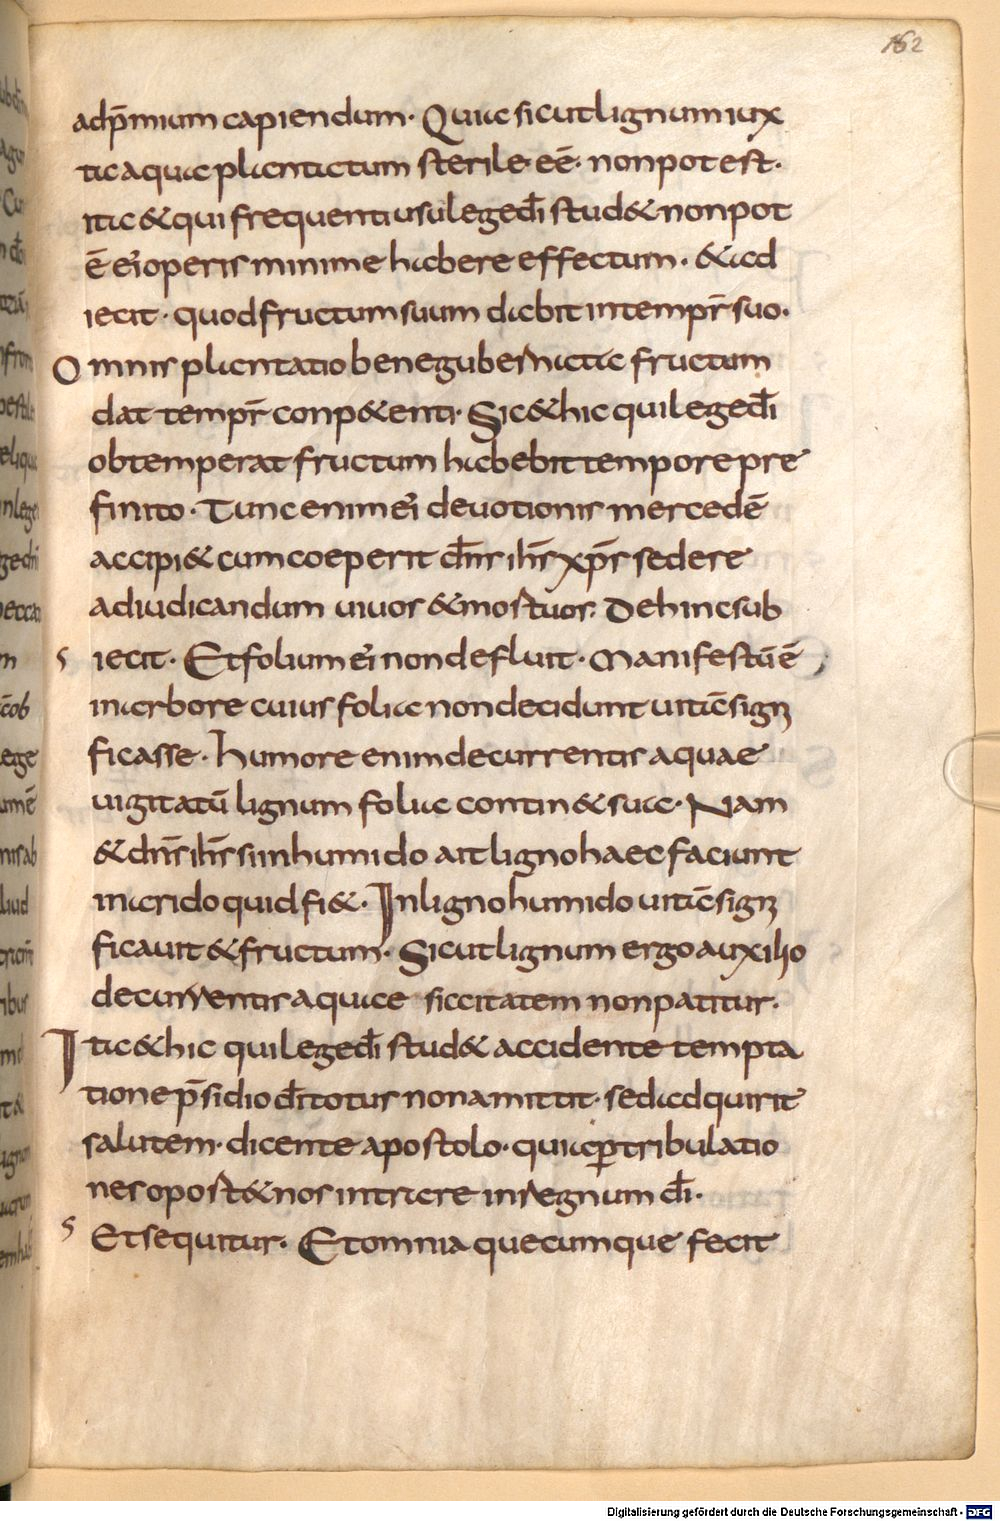 162
adp̄mium capiendum· Quia sicut lignum iux
ta aqua plantatum sterile· eē· non potest·
ita & qui frequenti usu lege dī stud& non pot
ē ei operis minime habere effectum· & ad
iecit· quod fructum suum dabit in tempr̄ suo·
Omnis plantatio bene gubernata fructum
dat tempr̄ conp&enti· Sic & hic qui lege dī
obtemperat fructum habebit tempore pre
finito· Tunc enim ei deuotionis mercedē
accipi& cum coeperit dn̄s ih̄s xp̄s sedere
ad iudicandum uiuos & mortuos· Dehinc sub
s iecit· Et folium ei non defluit· Manifestū ē
in arbore cuius folia non decidunt uitā signi
ficasse· humore enim decurrentis aquae
uigitatū lignum folia contin& sua· Nam
& dn̄s ih̄s si in humido ait ligno haec faciunt
in arido quid fi&· In ligno humido uitā signi
ficauit & fructum· Sicut lignum ergo auxilio
decurrentis aquae siccitatem non patitur·
Ita & hic qui lege dī stud& accidente tempta
tione p̄sidio dī totus non amittit· sed adquirit
salutem· dicente apostolo· quia ꝑ tribulatio
nes oport& nos intrare in regnum dī·
s Et sequitur· Et omnia quecumque fecit
Digitalisierung gefördert durch die Deutsche Forschungsgemeinschaft - DFG